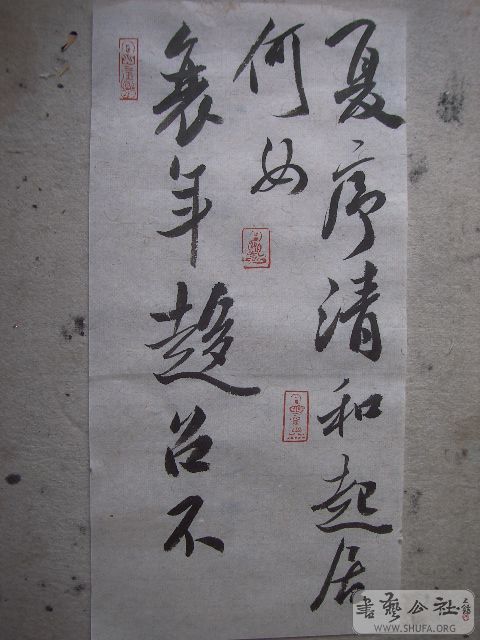 夏序清和起居
何如
衰年趍召不
書藝公社
WWW.SHUFA.ORG